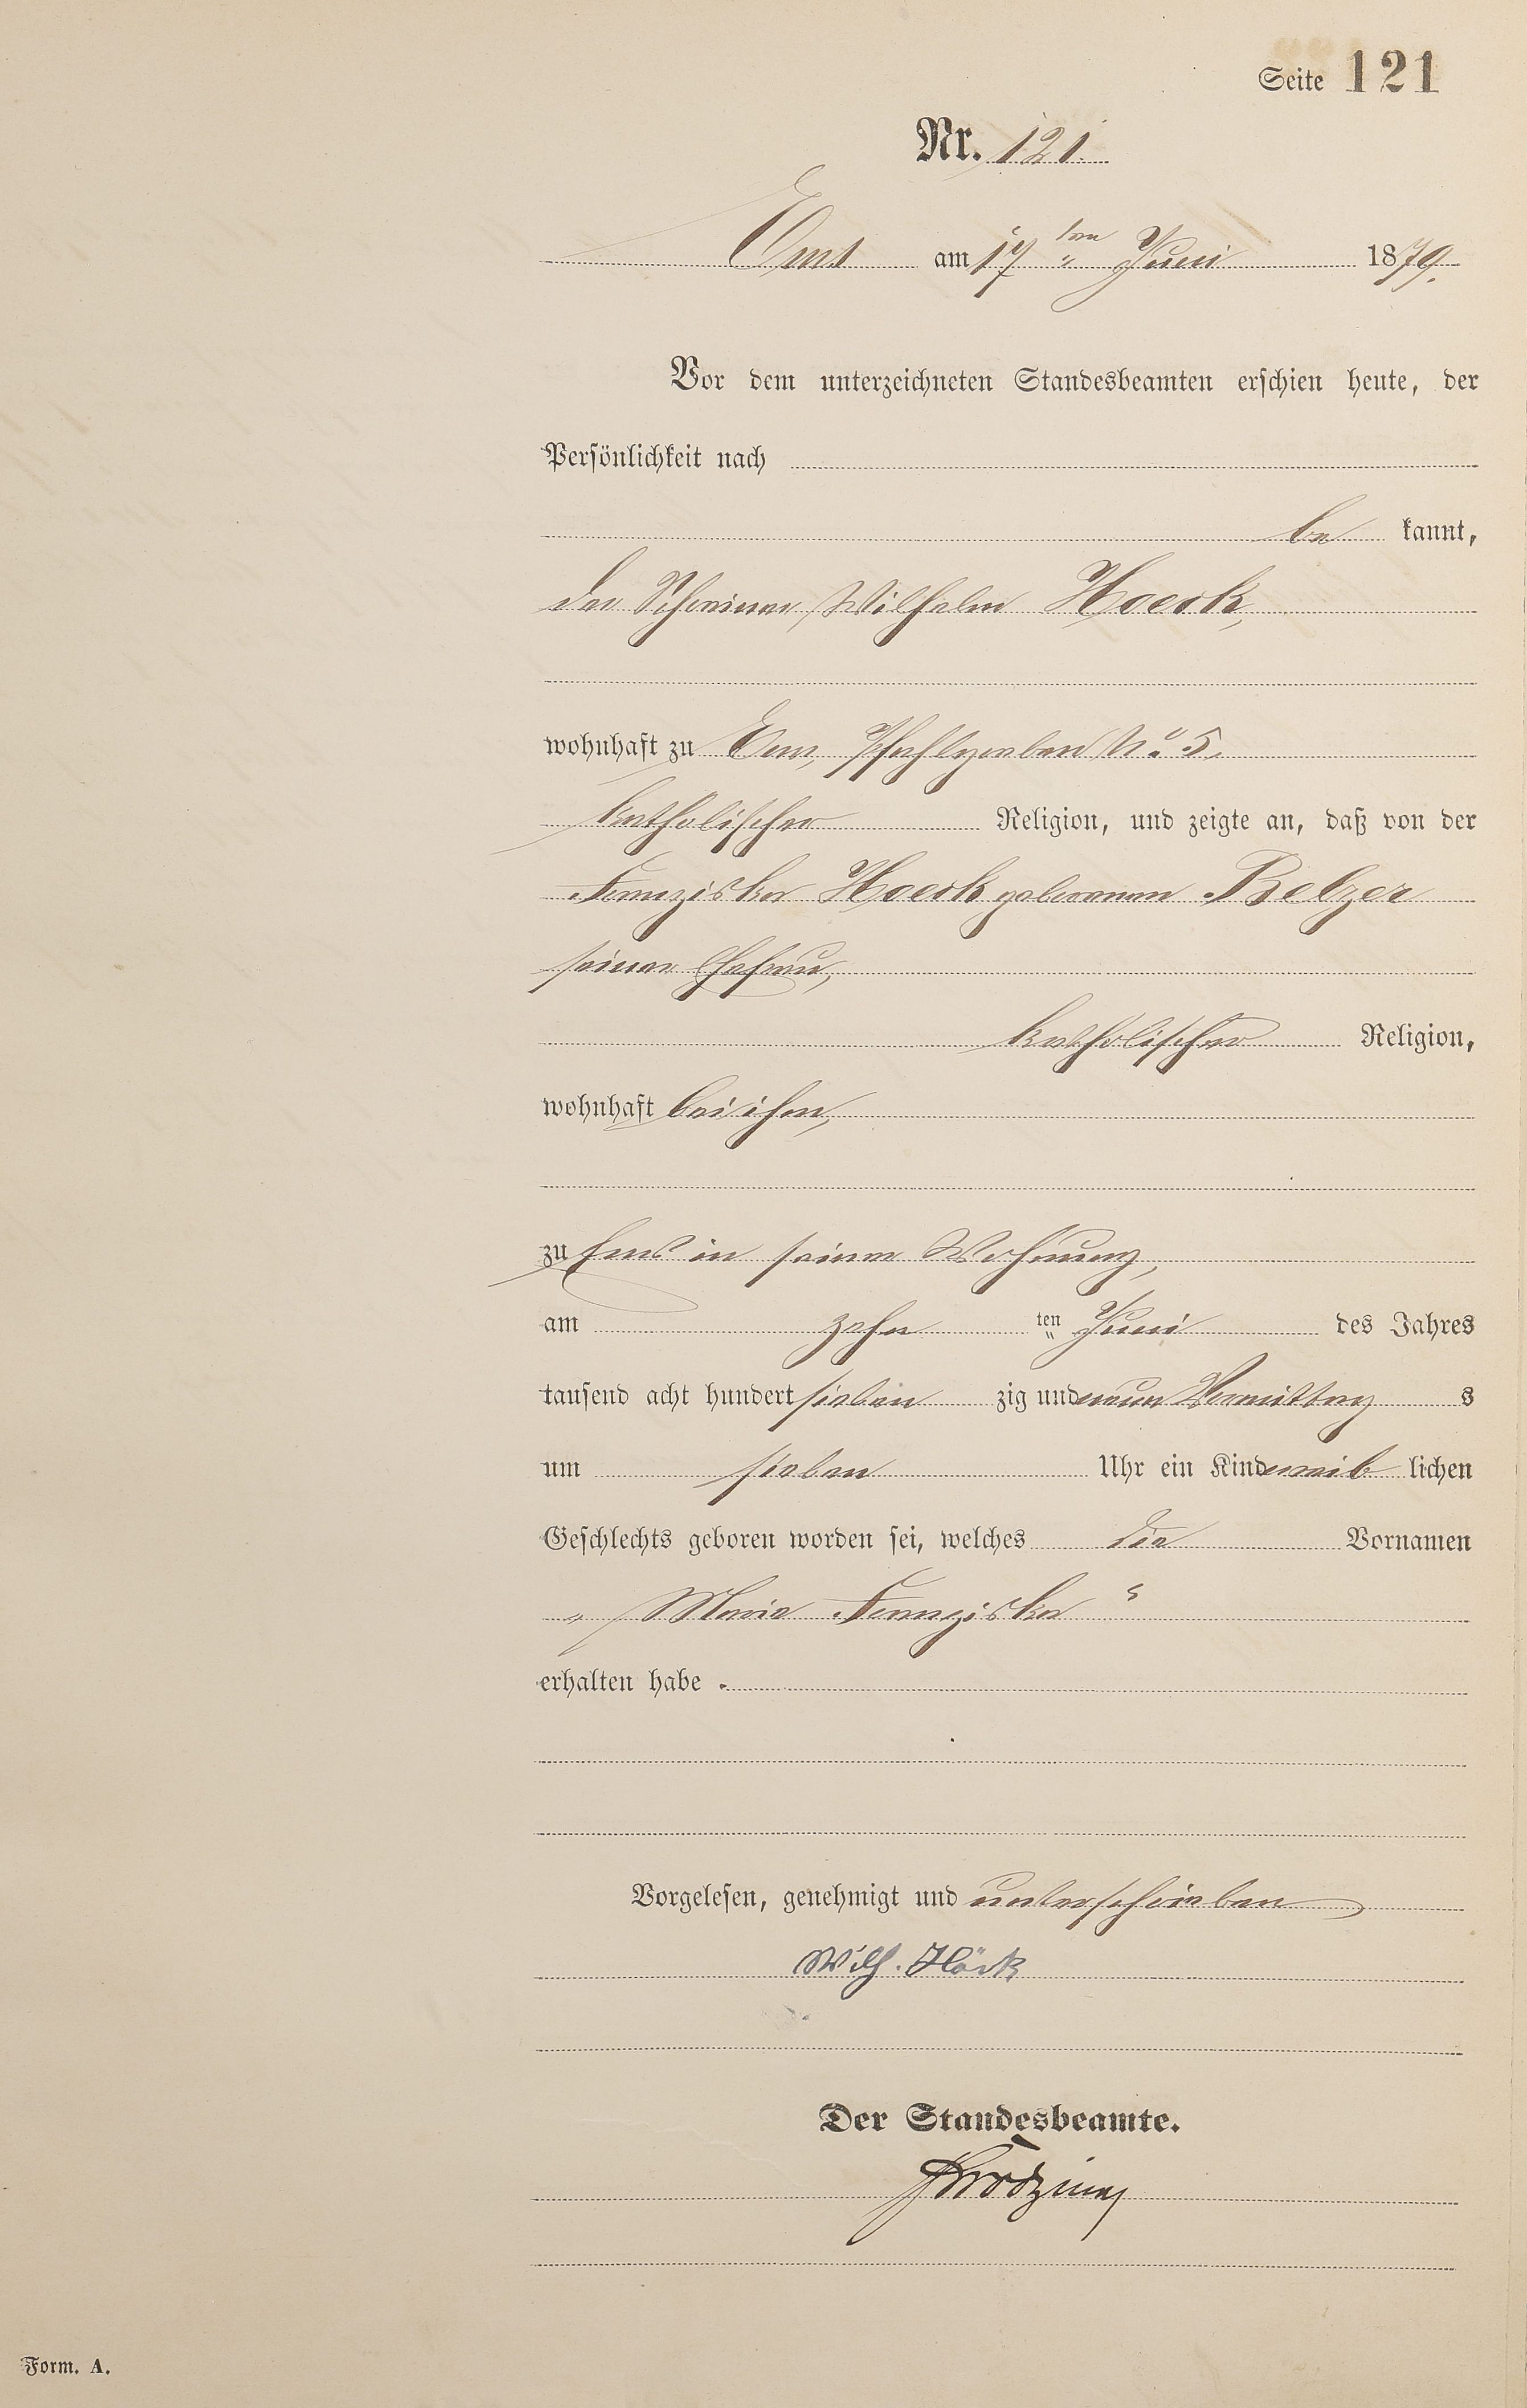 Seite 121
Nr. 121.
Ems am 17 ten Juni 1879.
Vor dem unterzeichneten Standesbeamten erschien heute, der
Persönlichkeit nach
be kannt,
der Schreiner, Wilhelm Hoeck,
wohnhaft zu Ems, Pfahlgraben No 5.
katholischer Religion, und zeigte an, daß von der
Franziska Hoeck geborenen Belzer
seiner Ehefrau,
katholischer Religion,
wohnhaft bei ihm,
zu Ems in seiner Wohnung,
am zehn ten Juni des Jahres
tausend acht hundert sieben zig und neun Vormittag s
um sieben Uhr ein Kind weib lichen
Geschlechts geboren worden sei, welches die Vornamen
„Maria Franziska“
erhalten habe.
Vorgelesen, genehmigt und unterschrieben
Wilh. Höck
Der Standesbeamte.
Form. A.